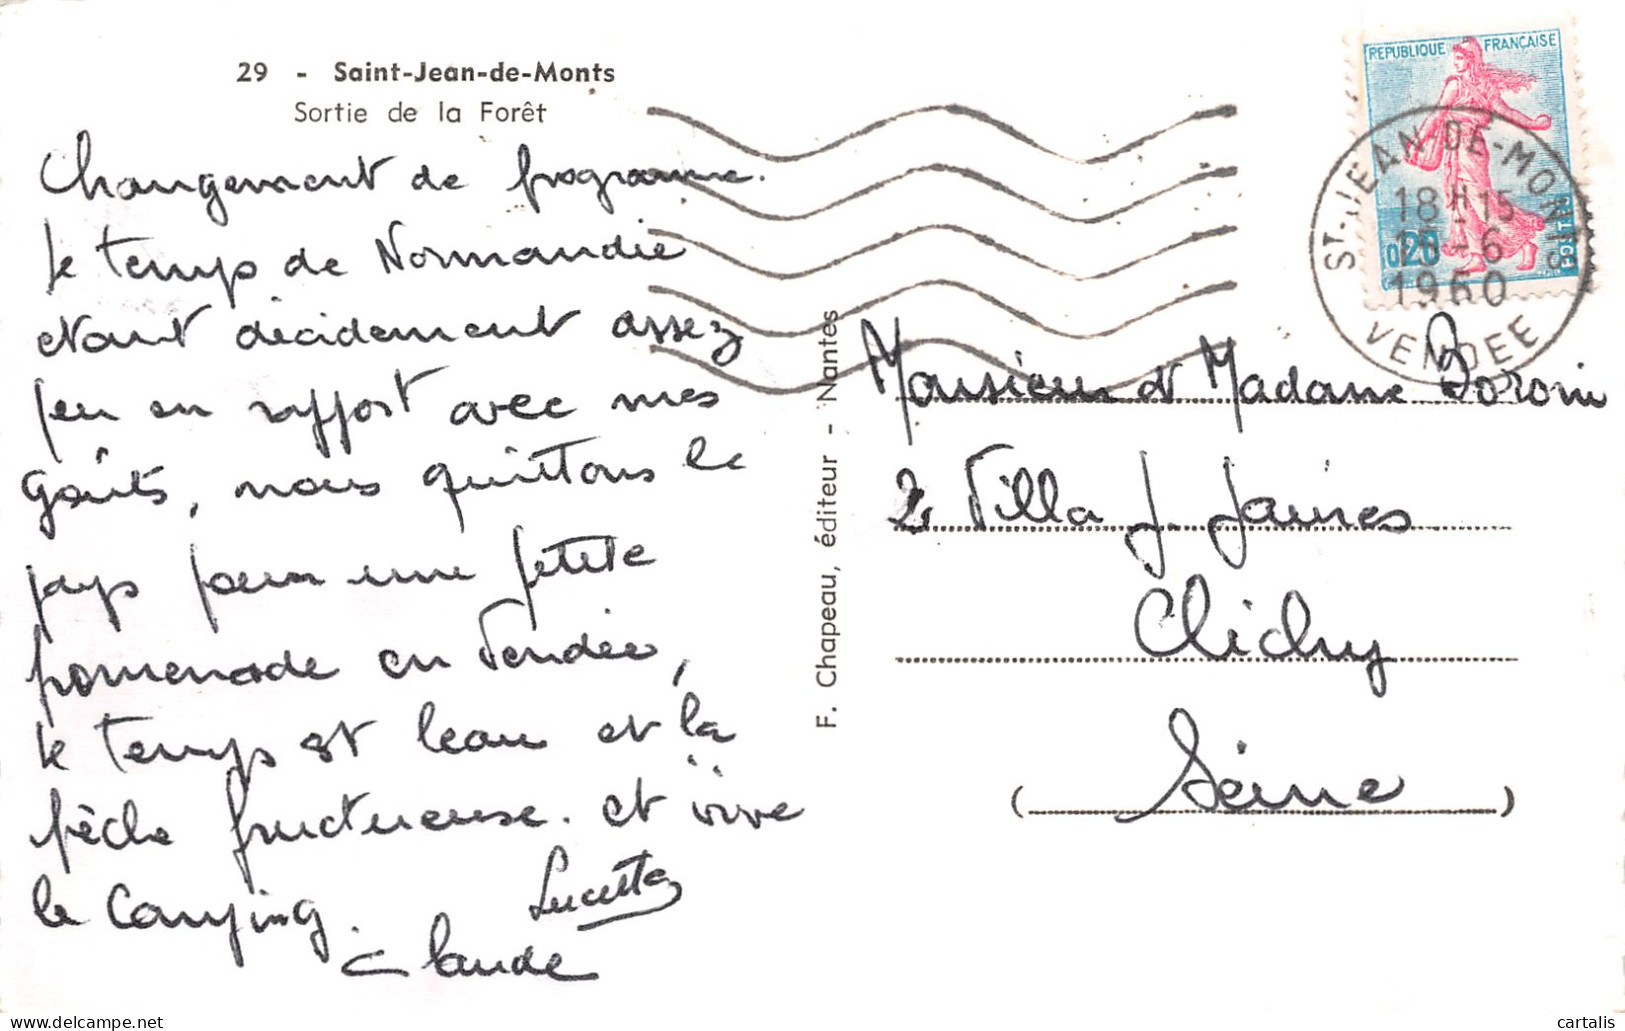 29 - Saint-Jean-de-Monts
Sortie de la Forêt
Changement de programme.
le temps de Normandie
étant décidément assez
peu en rapport avec mes
goûts, nous quittons le
pays pour une petite
promenade en Vendée,
le temps est beau et la
pêche fructueuse. et vive
le Camping.
Lucette
Claude
F. Chapeau, éditeur - Nantes
REPUBLIQUE FRANÇAISE
0,20
POSTES
ST-JEAN-DE-MONTS
18H15
-6
1960
VENDEE
Monsieur et Madame
2 Villa J. Jaurès
Clichy
(Seine)
cartalis